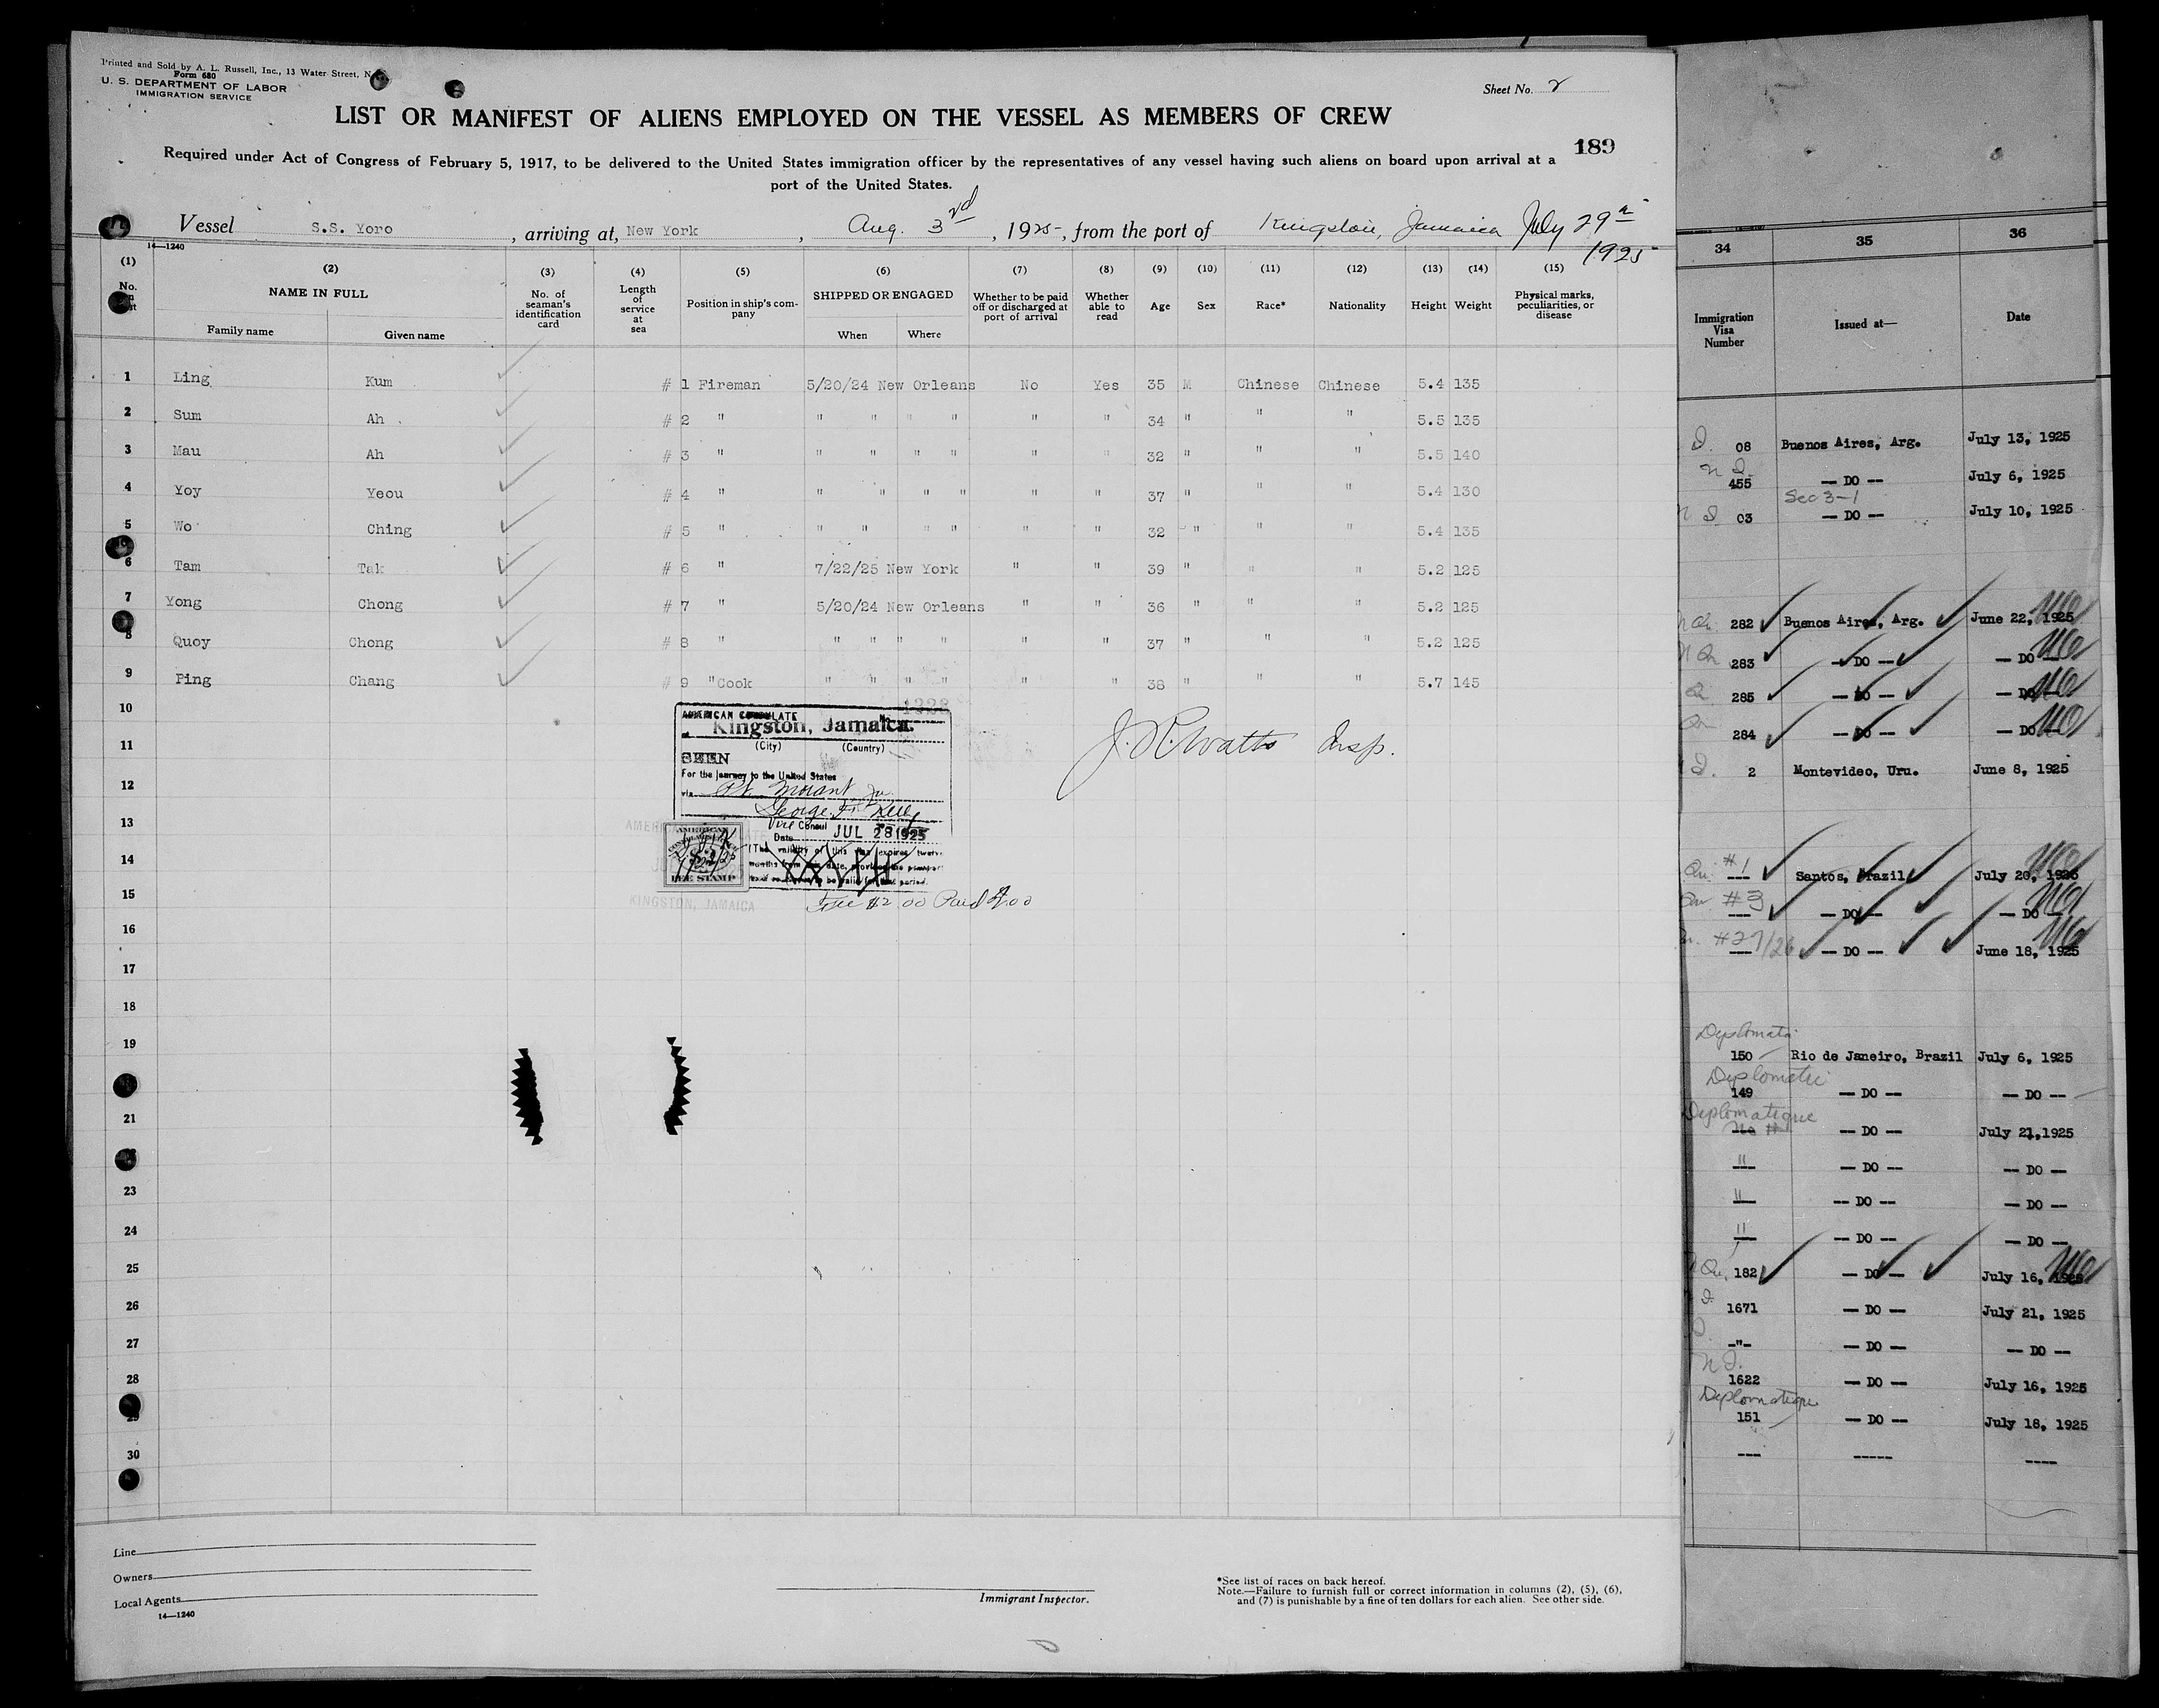 Printed and Sold by A. L. Russell, Inc., 13 Water Street, N.
Form 680
U. S. DEPARTMENT OF LABOR
IMMIGRATION SERVICE
Sheet No. 2
LIST OR MANIFEST OF ALIENS EMPLOYED ON THE VESSEL AS MEMBERS OF CREW
189
Required under Act of Congress of February 5, 1917, to be delivered to the United States immigration officer by the representatives of any vessel having such aliens on board upon arrival at a
port of the United States.
Vessel S.S. Yoro, arriving at, New York, Aug. 3rd, 1925, from the port of Kingston, Jamaica July 29th
1925
14—1240
(1) (2) (3) (4) (5) (6) (7) (8) (9) (10) (11) (12) (13) (14) (15)
No. NAME IN FULL
Family name Given name
No. of seaman's identification card
Length of service at sea
Position in ship's company
SHIPPED OR ENGAGED
When Where
Whether to be paid off or discharged at port of arrival
Whether able to read
Age Sex Race* Nationality Height Weight
Physical marks, peculiarities, or disease
1 Ling Kum # 1 Fireman 5/20/24 New Orleans No Yes 35 M Chinese Chinese 5.4 135
2 Sum Ah # 2 " " " " " " " 34 " " " 5.5 135
3 Mau Ah # 3 " " " " " " " 32 " " " 5.5 140
4 Yoy Yeou # 4 " " " " " " " 37 " " " 5.4 130
5 Wo Ching # 5 " " " " " " " 32 " " " 5.4 135
6 Tam Tak # 6 " 7/22/25 New York " " 39 " " " 5.2 125
7 Yong Chong # 7 " 5/20/24 New Orleans " " 36 " " " 5.2 125
8 Quoy Chong # 8 " " " " " " " 37 " " " 5.2 125
9 Ping Chang # 9 "Cook " " " " " " 38 " " " 5.7 145
10
11
12
13
14
15
16
17
18
19
21
23
24
25
26
27
28
29
30
AMERICAN CONSULATE
at Kingston, Jamaica.
(City) (Country)
SEEN
For the journey to the United States
via Pt. Morant Ja.
Vice Consul
Date JUL 28 1925
(The validity of this visa expires twelve
months from this date, provided the passport
itself continues to be valid for that period.
FEE STAMP
KINGSTON, JAMAICA
Fee $2.00 Paid $2.00
J. R. Watts Insp.
Line
Owners
Local Agents
14—1240
Immigrant Inspector.
*See list of races on back hereof.
Note.—Failure to furnish full or correct information in columns (2), (5), (6),
and (7) is punishable by a fine of ten dollars for each alien. See other side.
34 35 36
Immigration Visa Number Issued at— Date
08 Buenos Aires, Arg. July 13, 1925
455 — DO — July 6, 1925
Sec 3-1
03 — DO — July 10, 1925
282 Buenos Aires, Arg. June 22, 1925
283 — DO — — DO —
285 — DO — — DO —
284 — DO — — DO —
2 Montevideo, Uru. June 8, 1925
#1 --- Santos, Brazil July 20, 1925
#3 --- — DO — — DO —
#27/26 --- — DO — June 18, 1925
Diplomatic
150 Rio de Janeiro, Brazil July 6, 1925
Diplomatic
149 — DO — — DO —
Diplomatique
--- — DO — July 21,1925
" --- — DO — — DO —
" --- — DO — — DO —
" --- — DO — — DO —
182 — DO — July 16, 1925
1671 — DO — July 21, 1925
-"- — DO — — DO —
1622 — DO — July 16, 1925
Diplomatique
151 — DO — July 18, 1925
--- ----- ----